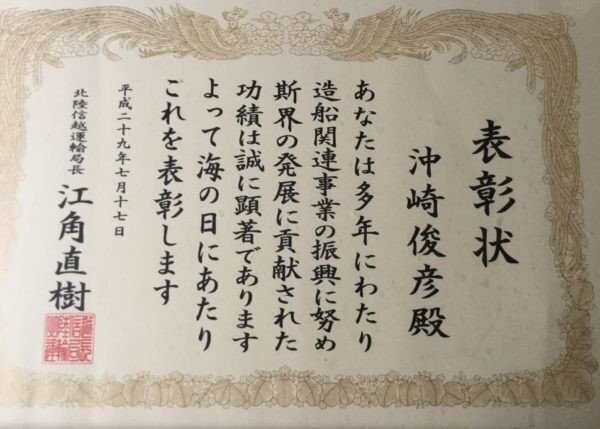 表彰状
沖崎俊彦殿
あなたは多年にわたり
造船関連事業の振興に努め
斯界の発展に貢献された
功績は誠に顕著であります
よって海の日にあたり
これを表彰します
平成二十九年七月十七日
北陸信越運輸局長
江角直樹